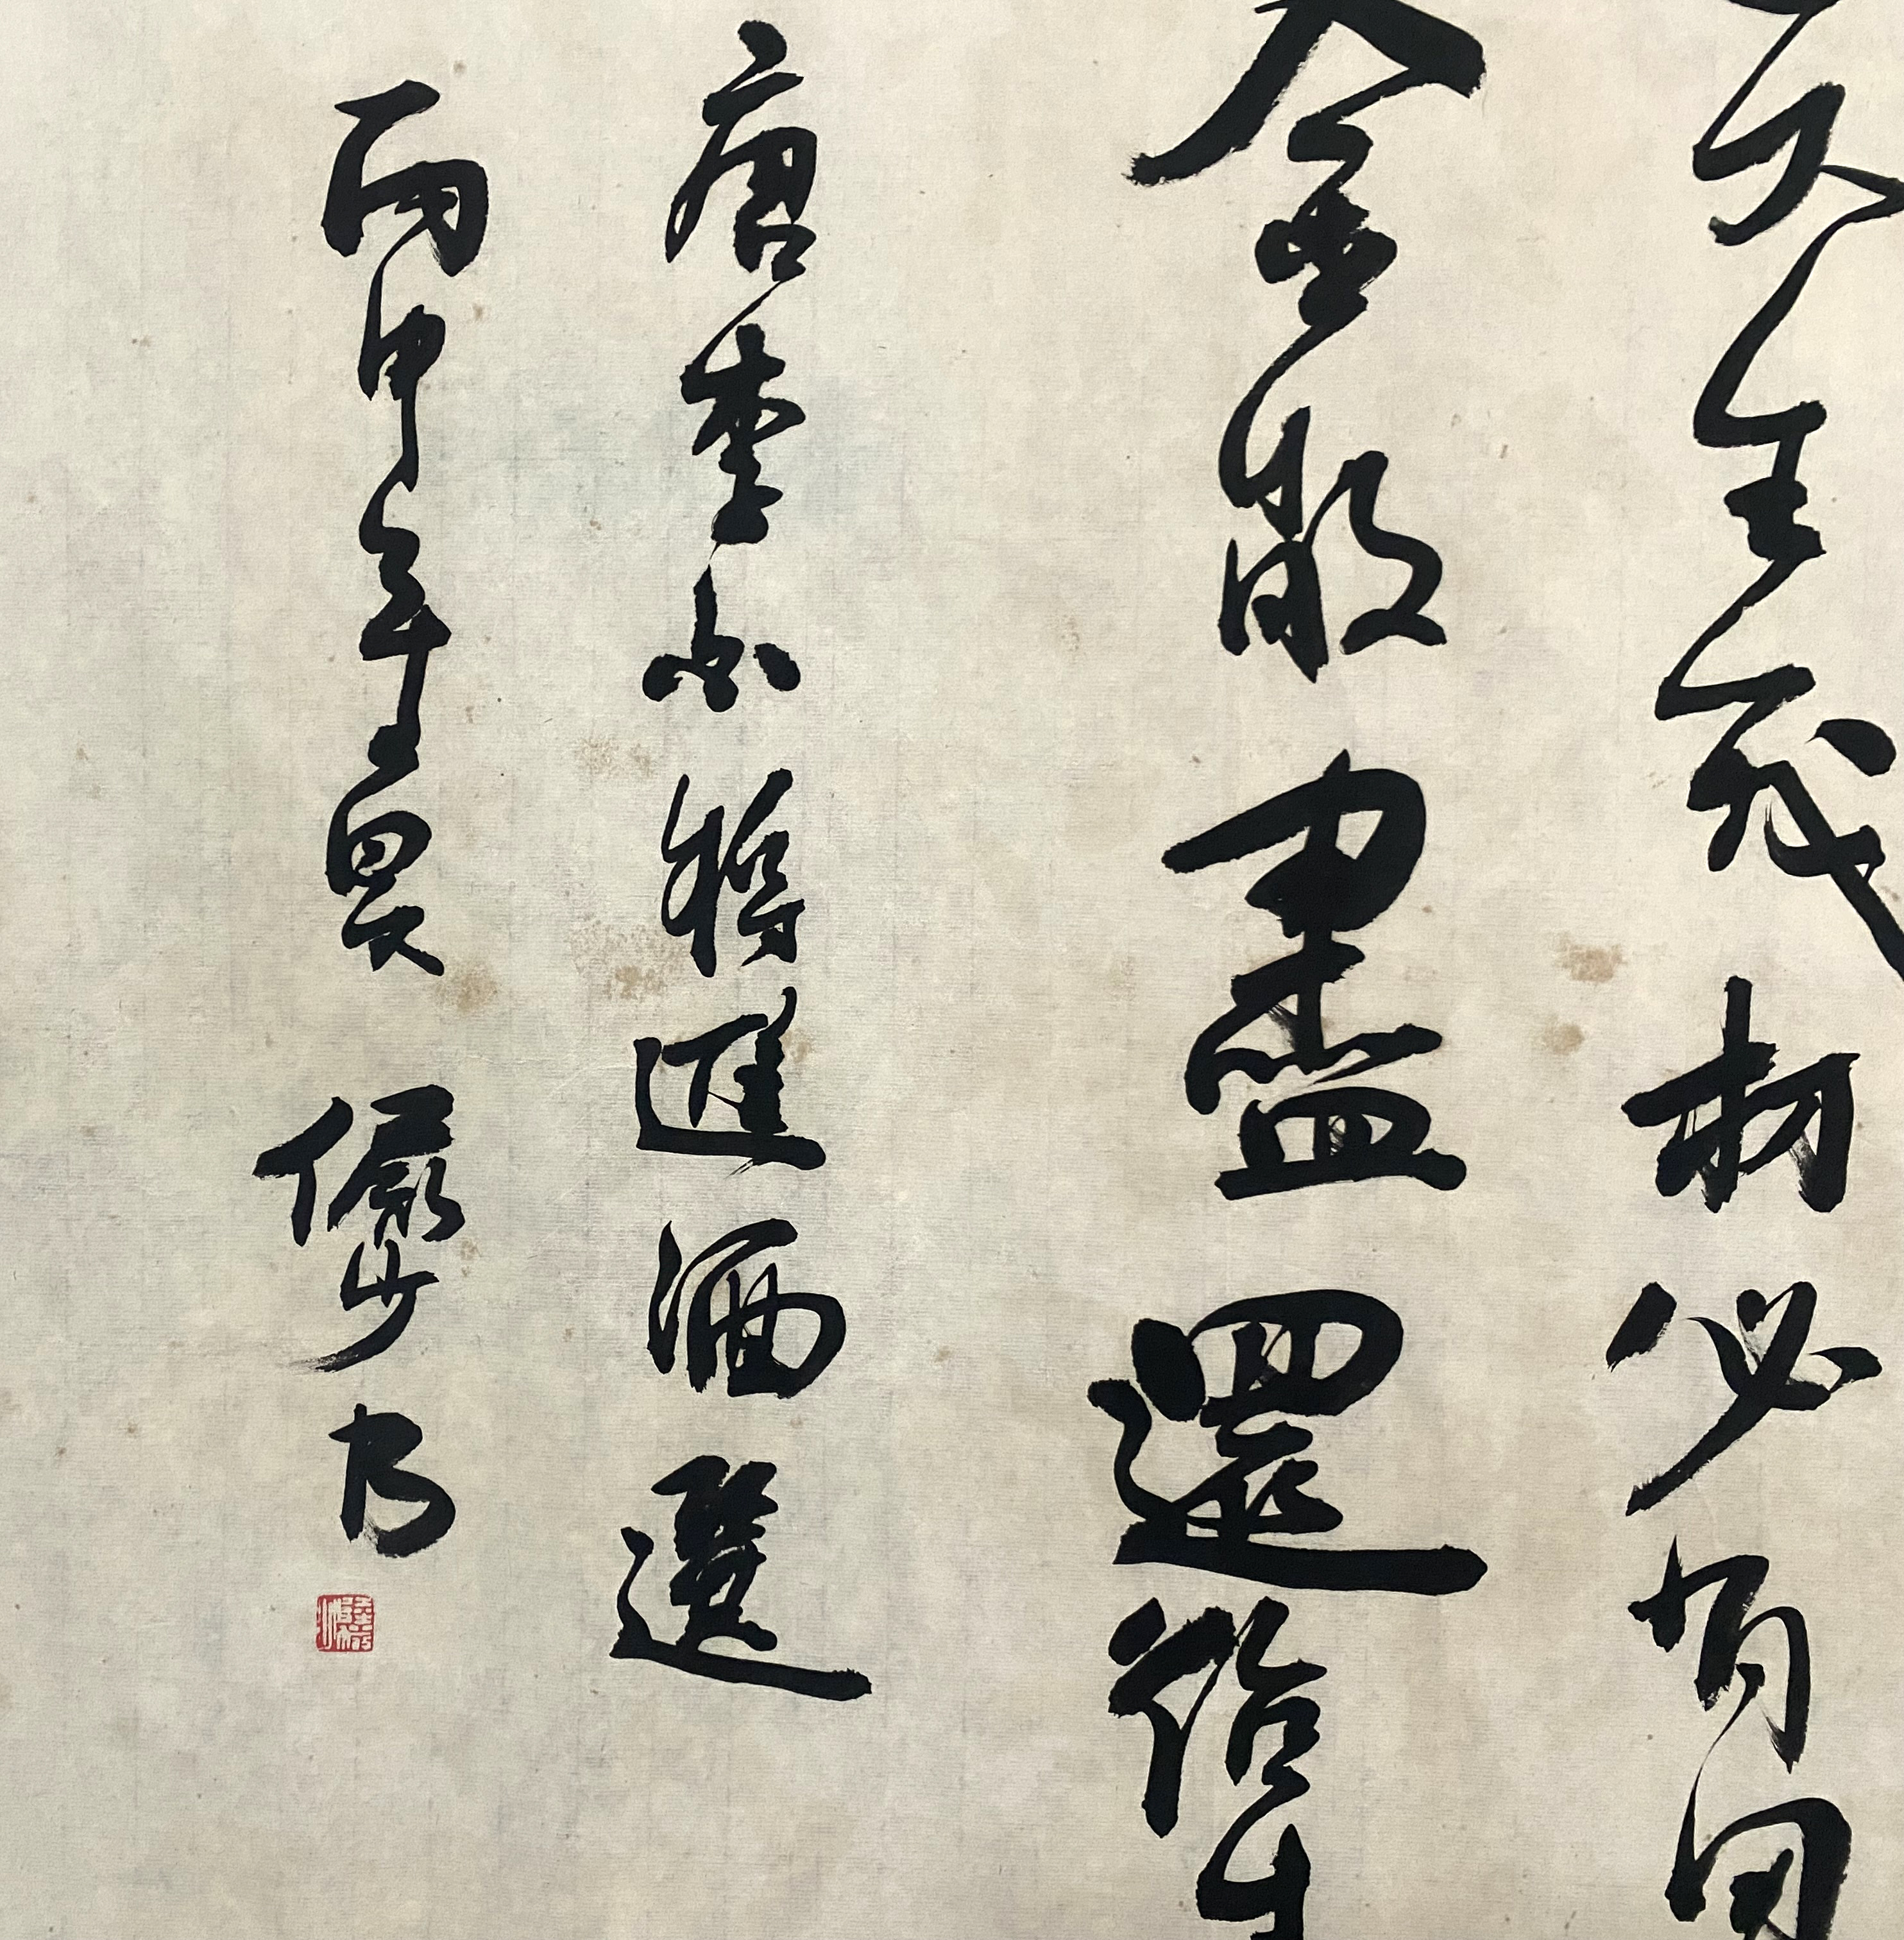 天生我材必有用
金散盡還復
唐李白將進酒選
丙申年夏 儼少书